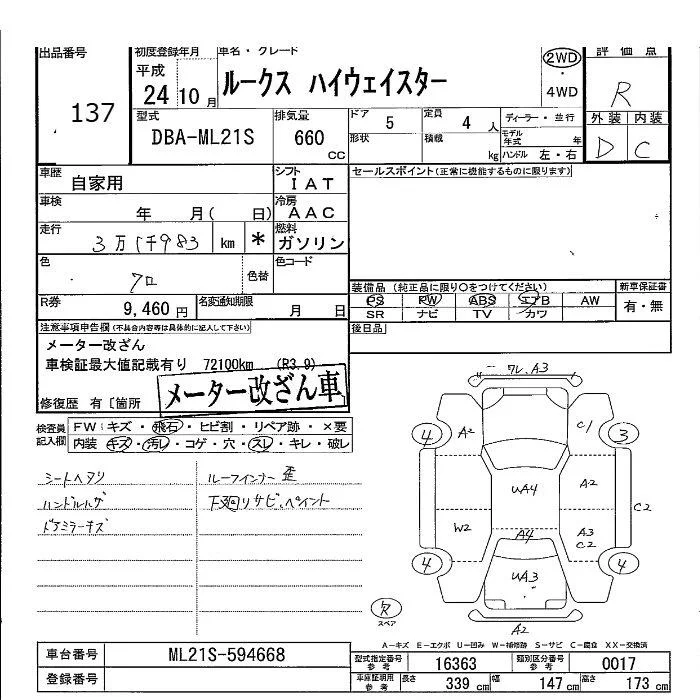 出品番号 初度登録年月 車名・グレード 2WD 評価点
137 平成 24 10月 ルークス ハイウェイスター ・ 4WD R
型式 排気量 ドア 5 定員 4人 ディーラー・並行 外装 内装
DBA-ML21S 660 cc 形状 積載 kg モデル年式 年 D C
ハンドル 左・右
車歴 自家用 シフト IAT セールスポイント(正常に機能するものに限ります)
車検 年 月( 日) 冷房 AAC
走行 3万1千983 km * 燃料 ガソリン
色 クロ 色替 色コード
装備品 (純正品に限り○をつけてください) 新車保証書
R券 9,460円 名変通知期限 月 日 PS PW ABS エアB AW 有・無
SR ナビ TV カワ
注意事項申告欄(不具合内容等は具体的に記入して下さい) 後日品
メーター改ざん
車検証最大値記載有り 72100km (R3.9)
メーター改ざん車
修復歴 有〔箇所
検査員記入欄 FW:キズ・飛石・ヒビ割・リペア跡・×要
内装 キズ・汚レ・コゲ・穴・スレ・キレ・破レ
シートヘタリ ルーフインナー歪
ハンドルハゲ 下廻りサビ、ペイント
ドアミラーキズ
ワレ、A3
4 A2 C1 3
UA4 A2
C2
W2 A4 A3
C2
4 UA3 4
欠
スペア
A2
A-キズ E-エクボ U-凹み W-補修跡 S-サビ C-腐食 XX-交換済
車台番号 ML21S-594668 型式指定番号 参考 16363 類別区分番号 参考 0017
登録番号 車庫証明用 参考 長さ 339cm 幅 147cm 高さ 173cm